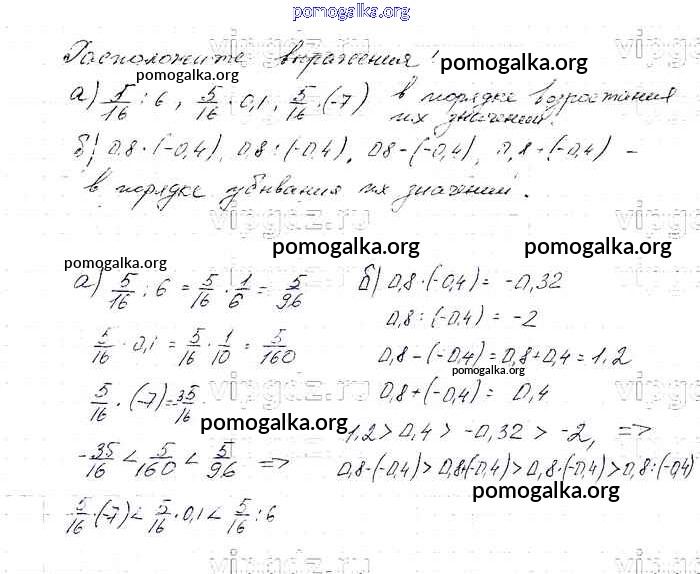 pomogalka.org
Расположите выражения:
pomogalka.org
pomogalka.org
а) 5/16 : 6, 5/16 · 0,1, 5/16 · (-7) в порядке возростания
их значений,
pomogalka.org
б) 0,8 · (-0,4), 0,8 : (-0,4), 0,8 - (-0,4), 0,8 + (-0,4) –
в порядке убывания их значений.
vipgdz.ru
pomogalka.org
pomogalka.org
pomogalka.org
а) 5/16 : 6 = 5/16 · 1/6 = 5/96
5/16 · 0,1 = 5/16 · 1/10 = 5/160
5/16 · (-7) = 35/16
-35/16 < 5/160 < 5/96 =>
5/16 · (-7) < 5/16 · 0,1 < 5/16 : 6
б) 0,8 · (-0,4) = -0,32
0,8 : (-0,4) = -2
0,8 - (-0,4) = 0,8 + 0,4 = 1,2
pomogalka.org
0,8 + (-0,4) = 0,4
pomogalka.org
1,2 > 0,4 > -0,32 > -2, =>
0,8 - (-0,4) > 0,8 + (-0,4) > 0,8 · (-0,4) > 0,8 : (-0,4)
pomogalka.org
vipgdz.ru